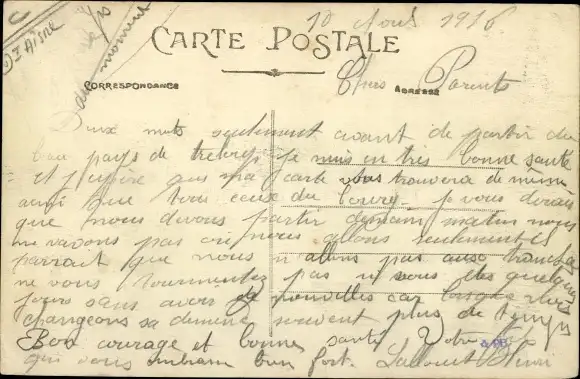 Dt Aisne
10 Aout 1916
CARTE POSTALE
CORRESPONDANCE
ADRESSE
Chers Parents
Deux mots seulement avant de partir du
bon pays de je suis en très bonne santé
et j'espère que ma carte vous trouvera de même
ainsi que tous ceux du bourg. je vous dirais
que nous devons partir demain matin nous
ne savons pas où nous allons seulement il
parrait que nous n'allons pas aux tranchées
ne vous tourmentez pas si vous êtes quelques
jours sans avoir de nouvelles car lorsque nous
changeons sa demande souvent plus de temps
Bon courage et bonne santé Votre fils
qui vous embrasse bien fort. Henri
au moment